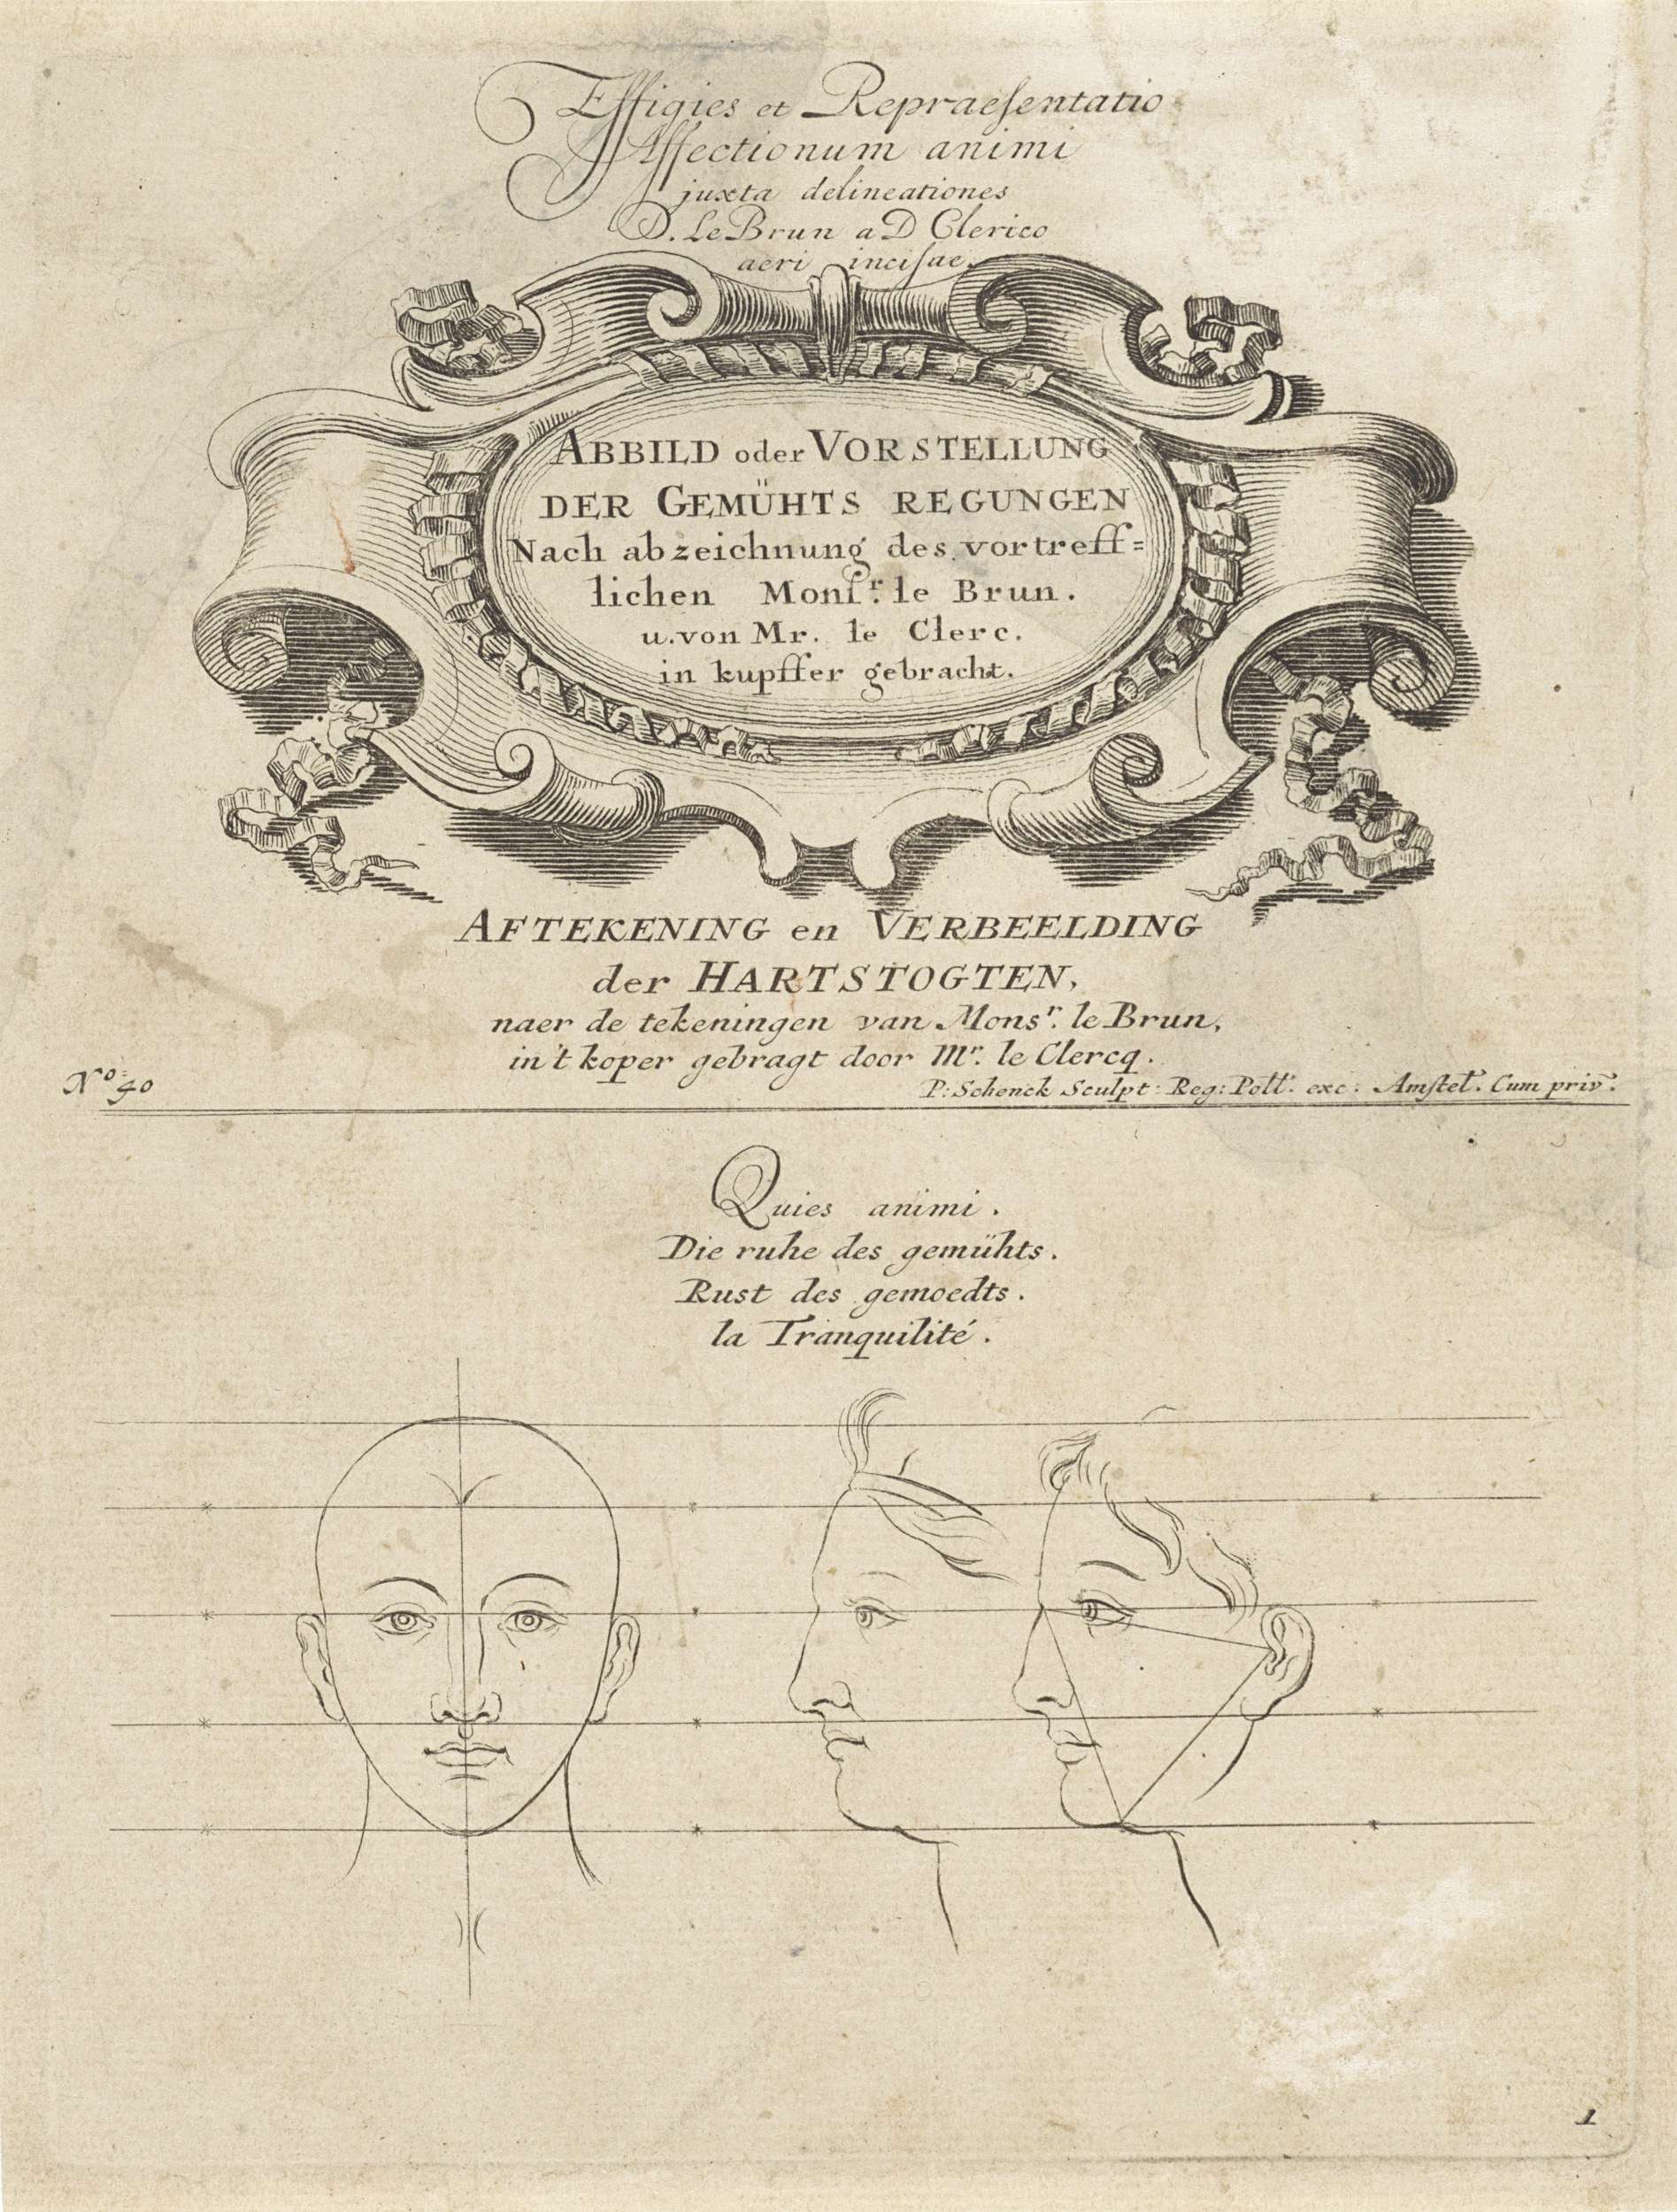 Effigies et Repraeſentatio
Affectionum animi
juxta delineationes
D. Le Brun a D Clerico
aeri inciſae.
ABBILD oder VORSTELLUNG
DER GEMÜHTS REGUNGEN
Nach abzeichnung des vortreff=
lichen Monſr. le Brun.
u. von Mr. le Clerc.
in kupffer gebracht.
AFTEKENING en VERBEELDING
der HARTSTOGTEN,
naer de tekeningen van Monsr. le Brun,
in't koper gebragt door Mr. le Clercq.
No: 40
P: Schenck Sculpt: Reg: Poll. exc: Amſtel. Cum priv.
Quies animi.
Die ruhe des gemühts.
Rust des gemoedts.
la Tranquilité.
1